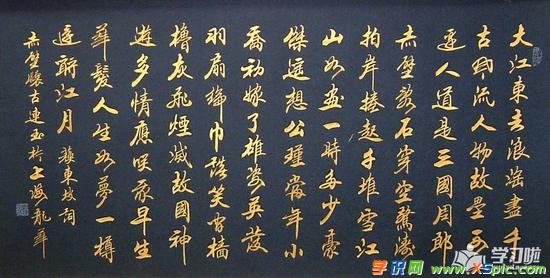 大江東去浪淘盡千
古風流人物故壘西
邊人道是三國周郎
赤壁亂石穿空驚濤
拍岸捲起千堆雪江
山如畫一時多少豪
傑遥想公瑾當年小
喬初嫁了雄姿英發
羽扇綸巾談笑間檣
櫓灰飛煙滅故國神
遊多情應笑我早生
華髮人生如夢一樽
還酹江月 蘇東坡詞
赤壁懷古連玉於上海龍華
学习啦
学识网 www.xspic.com